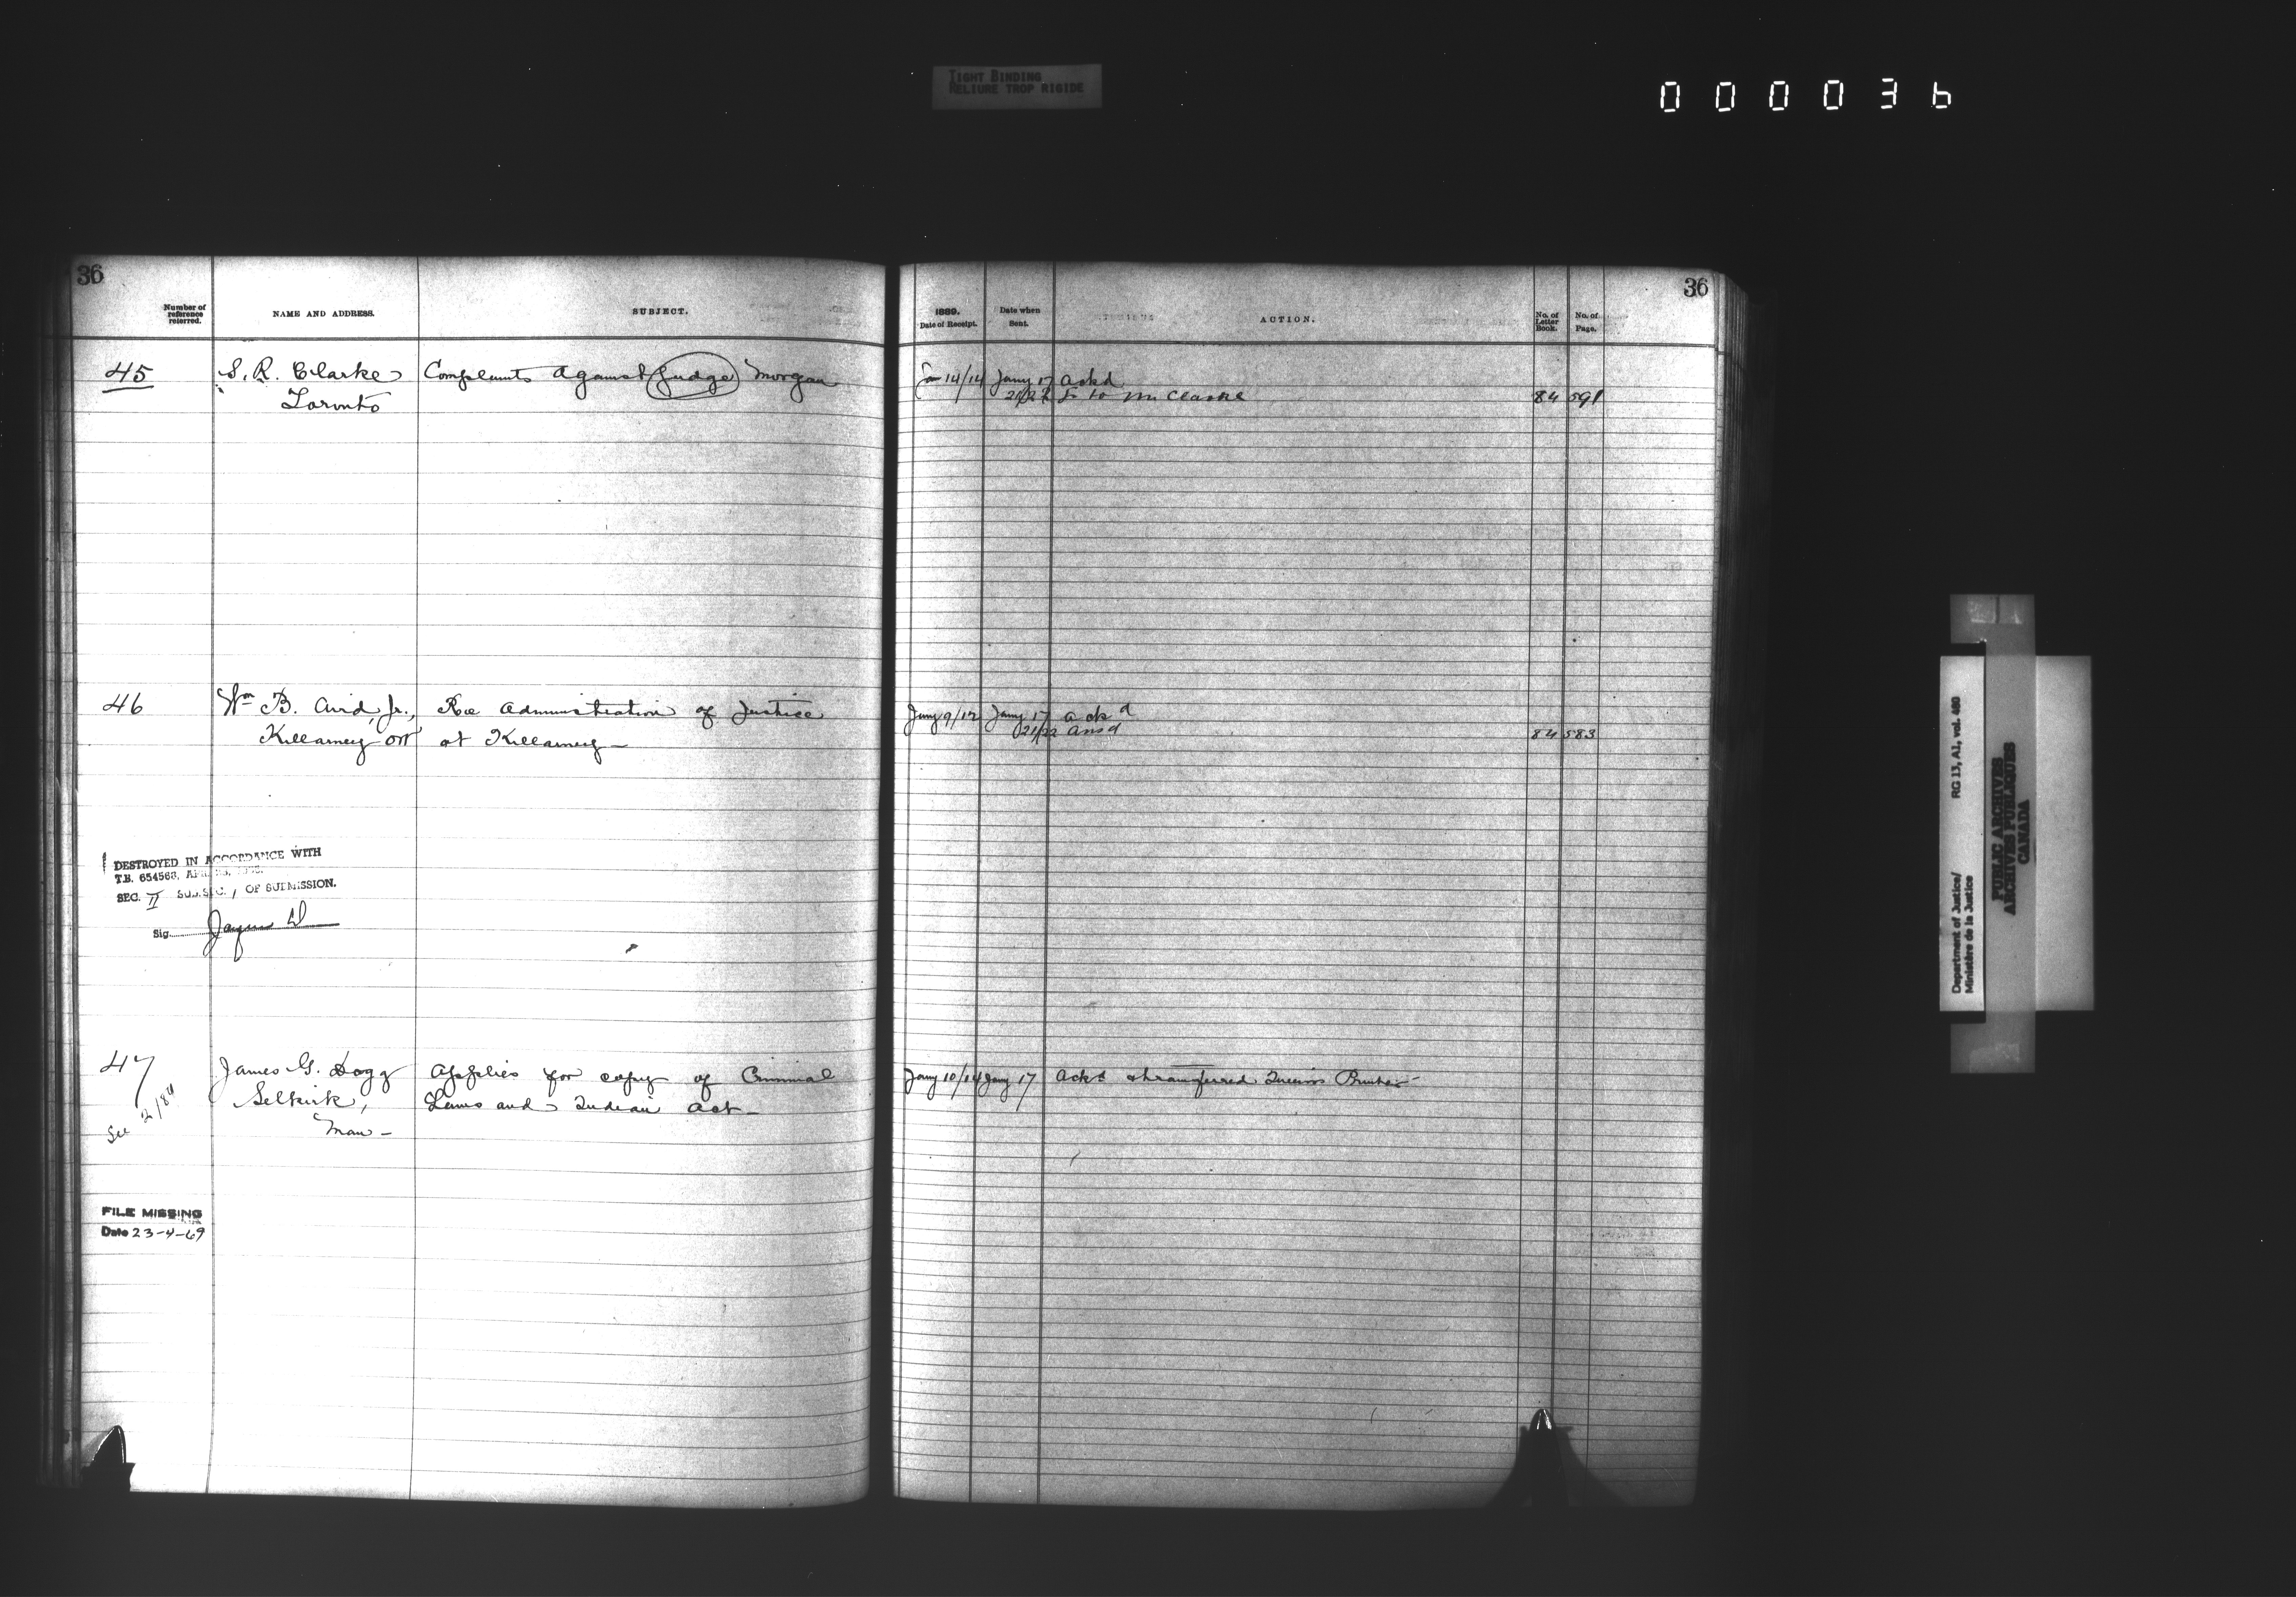 TIGHT BINDING
RELIURE TROP RIGIDE
000036
36
36
Number of reference referred.
NAME AND ADDRESS.
SUBJECT.
1889.
Date of Receipt.
Date when Sent.
ACTION.
No. of Letter Book.
No. of Page.
45 S. R. Clarke Complaints against Judge Morgan Jan 14/14 Jany 17 ackd
Toronto 21/22 L to Mr Clarke 84 591
46 Wm B. Aird, Jr., Re administration of Justice Jany 9/12 Jany 17 ackd
Killarney Ont at Killarney - 21/22 ansd 84 583
DESTROYED IN ACCORDANCE WITH
T.B. 654563, APR.
SEC. II SUB.SEC. 1 OF SUBMISSION.
Sig.
47 James G. Dagg Applies for copy of Criminal Jany 10/14 Jany 17 Ackd & transferred Queens Printer -
Selkirk, Laws and Indian Act -
Man -
See 2/84
FILE MISSING
Date 23-4-69
Department of Justice/ RG 13, A1, vol. 480
Ministère de la Justice
PUBLIC ARCHIVES
ARCHIVES PUBLIQUES
CANADA